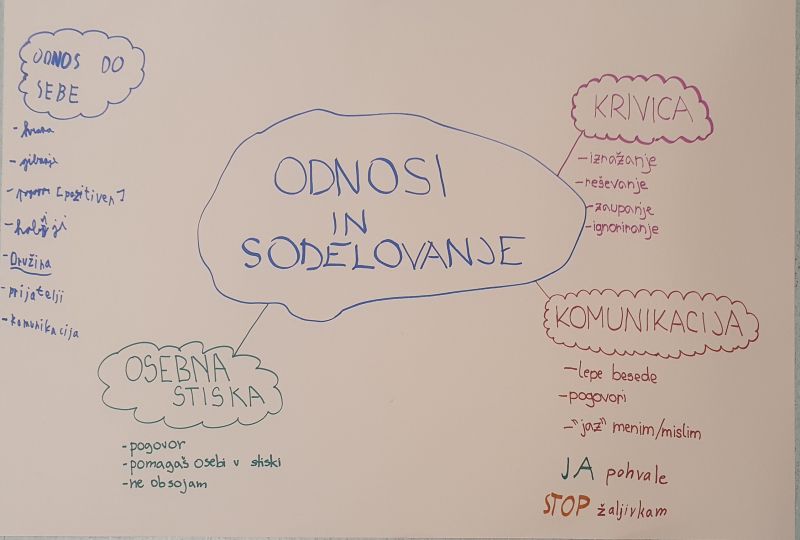 ODNOS DO
SEBE
- hrana
- gibanje
- [pozitiven]
- hobiji
- Družina
- prijatelji
- komunikacija
ODNOSI
IN
SODELOVANJE
KRIVICA
- izražanje
- reševanje
- zaupanje
- ignoriranje
KOMUNIKACIJA
- lepe besede
- pogovori
- "jaz" menim/mislim
JA pohvale
STOP žaljivkam
OSEBNA
STISKA
- pogovor
- pomagaš osebi v stiski
- ne obsojam